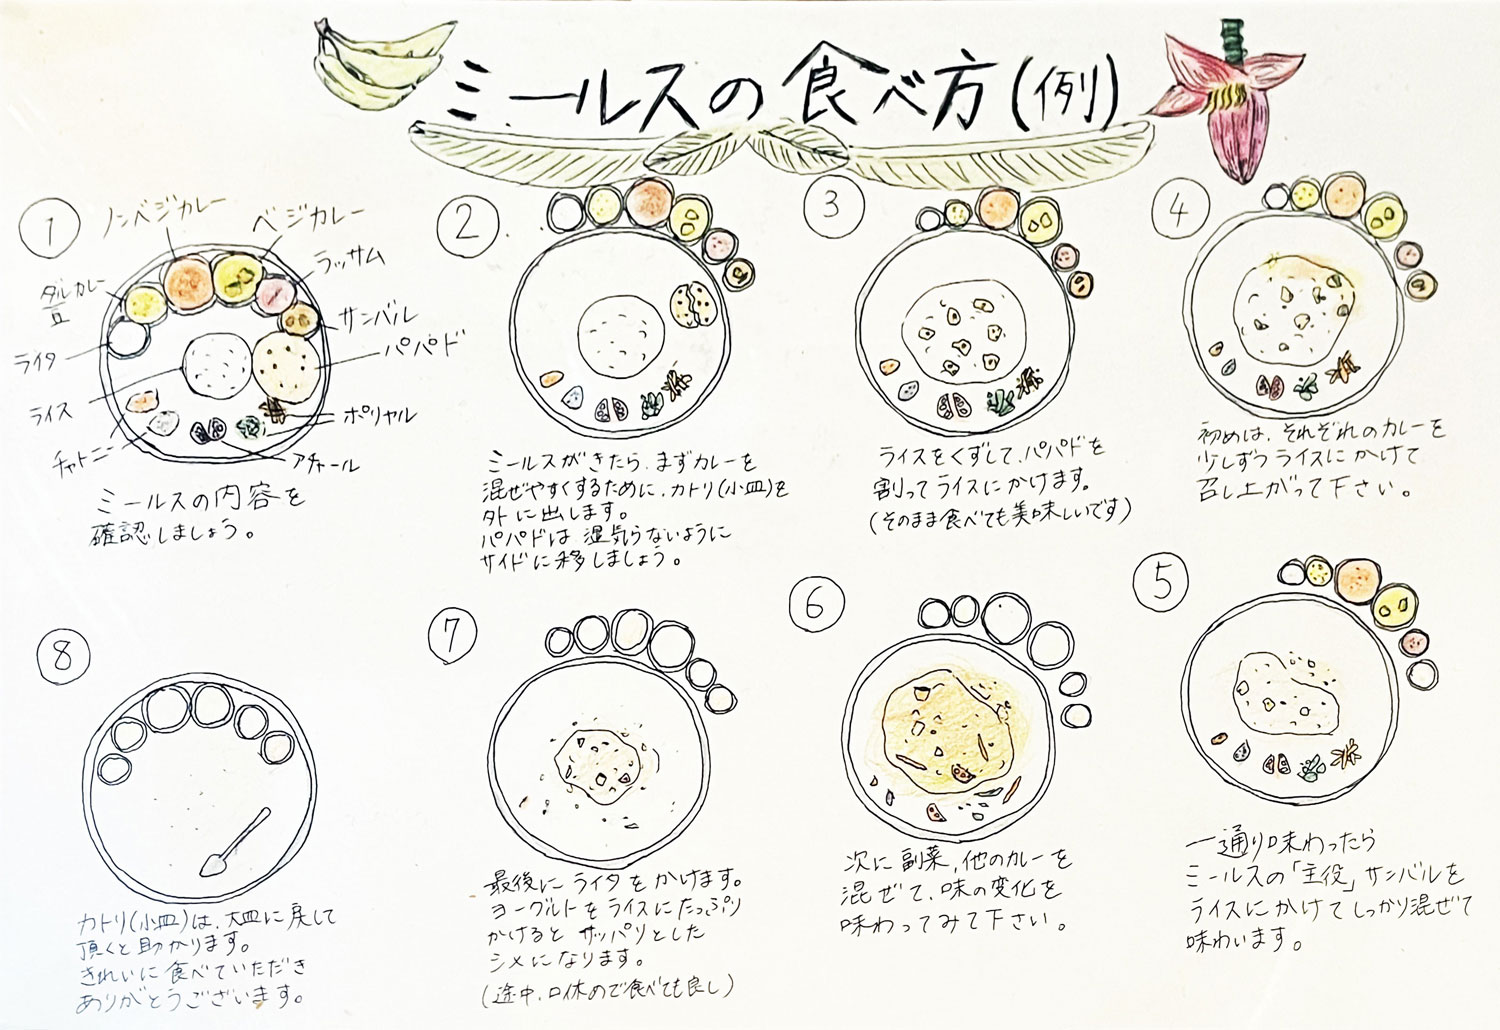 ミールスの食べ方(例)
①
ノンベジカレー
ベジカレー
ラッサム
サンバル
パパド
ポリヤル
アチャール
チャトニー
ライス
ライタ
ダルカレー
豆
ミールスの内容を
確認しましょう。
②
ミールスがきたら、まずカレーを
混ぜやすくするために、カトリ(小皿)を
外に出します。
パパドは湿気らないように
サイドに移しましょう。
③
ライスをくずして、パパドを
割ってライスにかけます。
(そのまま食べても美味しいです)
④
初めは、それぞれのカレーを
少しずつライスにかけて
召し上がって下さい。
⑤
一通り味わったら
ミールスの「主役」サンバルを
ライスにかけてしっかり混ぜて
味わいます。
⑥
次に副菜、他のカレーを
混ぜて、味の変化を
味わってみて下さい。
⑦
最後にライタをかけます。
ヨーグルトをライスにたっぷり
かけるとサッパリとした
シメになります。
(途中、口休めで食べても良し)
⑧
カトリ(小皿)は、大皿に戻して
頂くと助かります。
きれいに食べていただき
ありがとうございます。